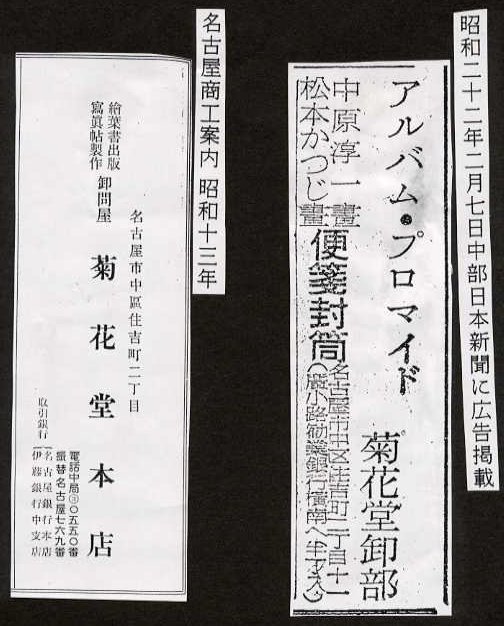 昭和二十二年二月七日中部日本新聞に広告掲載
アルバム・プロマイド
菊花堂卸部
中原淳一畫
松本かつじ畫
便箋封筒
名古屋市中区住吉町二丁目十一
名古屋商工案内 昭和十三年
繪葉書出版
寫眞帖製作
卸問屋
名古屋市中區住吉町二丁目
菊花堂本店
電話中局③〇五五〇番
振替名古屋七六九番
取引銀行
名古屋銀行本店
伊藤銀行中支店